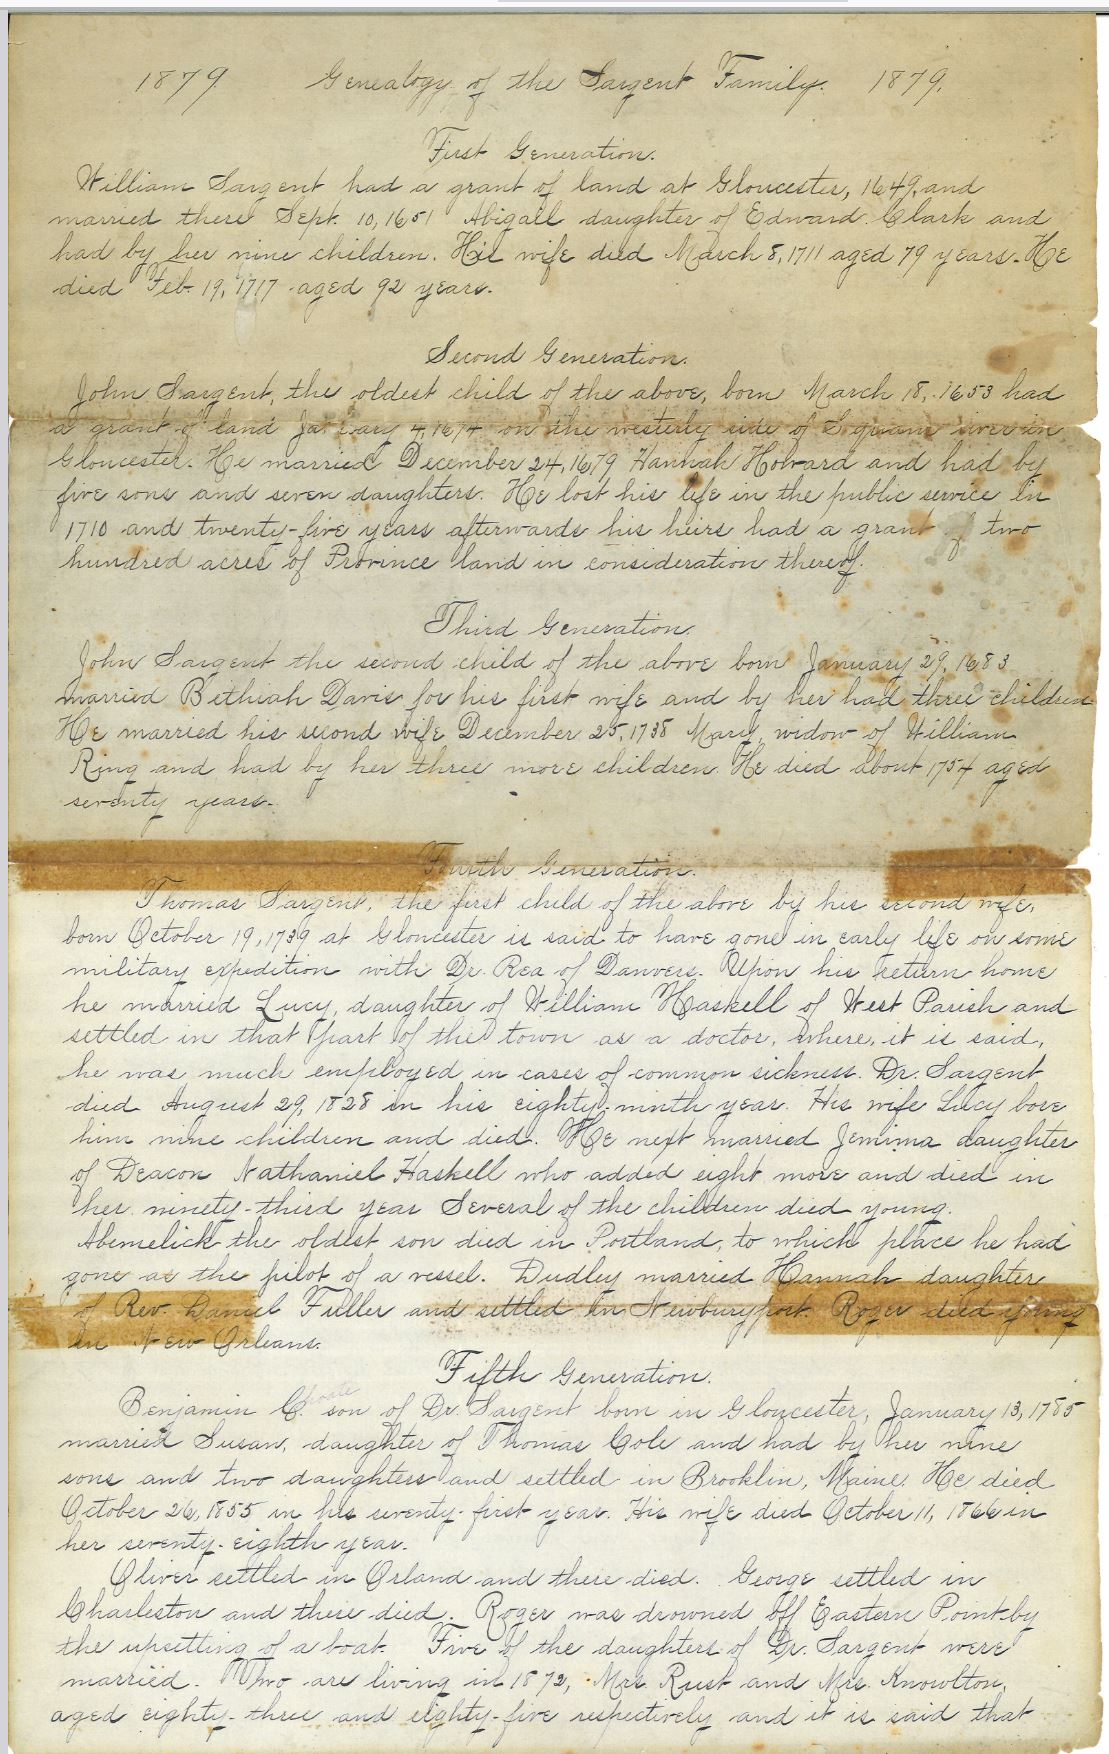 1879. Genealogy of the Sargent Family. 1879.
First Generation.
William Sargent had a grant of land at Gloucester, 1649, and
married there Sept. 10, 1651 Abigail daughter of Edward Clark and
had by her nine children. His wife died March 8, 1711 aged 79 years. He
died Feb. 19, 1717 aged 92 years.
Second Generation.
John Sargent, the oldest child of the above, born March 18, 1653 had
a grant of land January 4, 1674 on the westerly side of Squam river in
Gloucester. He married December 24, 1679 Hannah Howard and had by
five sons and seven daughters. He lost his life in the public service in
1710 and twenty-five years afterwards his heirs had a grant of two
hundred acres of Province land in consideration thereof.
Third Generation.
John Sargent the second child of the above born January 29, 1683
married Bethiah Davis for his first wife and by her had three children
He married his second wife December 25, 1738 Mary, widow of William
Ring and had by her three more children. He died about 1754 aged
seventy years.
Fourth Generation.
Thomas Sargent, the first child of the above by his second wife,
born October 19, 1739 at Gloucester is said to have gone in early life on some
military expedition with Dr. Rea of Danvers. Upon his return home
he married Lucy, daughter of William Haskell of West Parish and
settled in that part of the town as a doctor, where, it is said,
he was much employed in cases of common sickness. Dr. Sargent
died August 29, 1828 in his eighty-ninth year. His wife Lucy bore
him nine children and died. He next married Jemima daughter
of Deacon Nathaniel Haskell who added eight more and died in
her ninety-third year Several of the children died young.
Abemelick the oldest son died in Portland, to which place he had
gone as the pilot of a vessel. Dudley married Hannah daughter
of Rev. Daniel Fuller and settled in Newburyport. Roger died young
in New Orleans.
Fifth Generation.
Benjamin C.hoate son of Dr. Sargent born in Gloucester, January 13, 1785
married Susan, daughter of Thomas Cole and had by her nine
sons and two daughters and settled in Brooklin, Maine. He died
October 26, 1855 in his seventy-first year. His wife died October 11, 1866 in
her seventy-eighth year.
Oliver settled in Orland and there died. George settled in
Charleston and there died. Roger was drowned off Eastern Point by
the upsetting of a boat. Five of the daughters of Dr. Sargent were
married. Two are living in 1872, Mrs. Rust and Mrs. Knowlton,
aged eighty-three and eighty-five respectively and it is said that